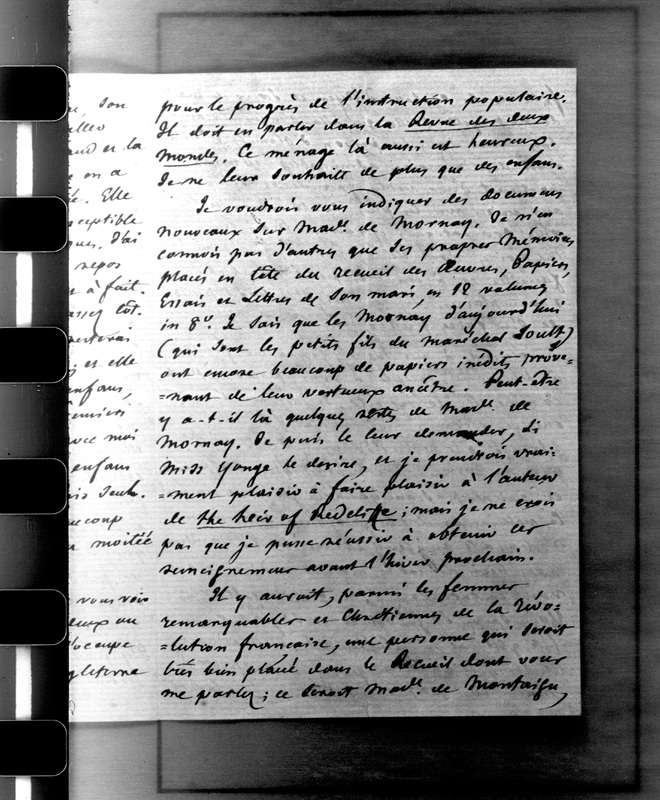 son
and et la
on a
Elle
ceptible
J'ai
repos
à fait.
assez tôt.
et elle
enfans,
moi
enfans
seul.
moitié
vous vois
deux ou
s'occupe
pour le progrès de l'instruction populaire.
Il doit en parler dans la Revue des deux
mondes. Ce ménage là aussi est heureux.
Je ne leur souhaite de plus que des enfans.
Je voudrois vous indiquer des documens
nouveaux sur Made. de Mornay. Je n'en
connois pas d'autres que ses propres Mémoires
placés en tête du recueil des Œuvres, Papiers,
Essais et Lettres de son mari, en 12 volumes
in 8o. Je sais que les Mornay d'aujourd'hui
(qui sont les petits fils du maréchal Soult)
ont encore beaucoup de papiers inédits prove=
=nant de leur vertueux ancêtre. Peut-être
y a-t-il là quelques restes de Made. de
Mornay. Je puis le leur demander, si
Miss Yonge le desire, et je prendrois vrai=
=ment plaisir à faire plaisir à l'auteur
de the heir of Redclyffe; mais je ne crois
pas que je pusse réussir à obtenir ces
renseignemens avant l'hiver prochain.
Il y auroit, parmi les femmes
remarquables et Chrétiennes de la révo=
=lution française, une personne qui seroit
très bien placée dans le Recueil dont vous
me parlez; ce seroit Made. de Montaigu,